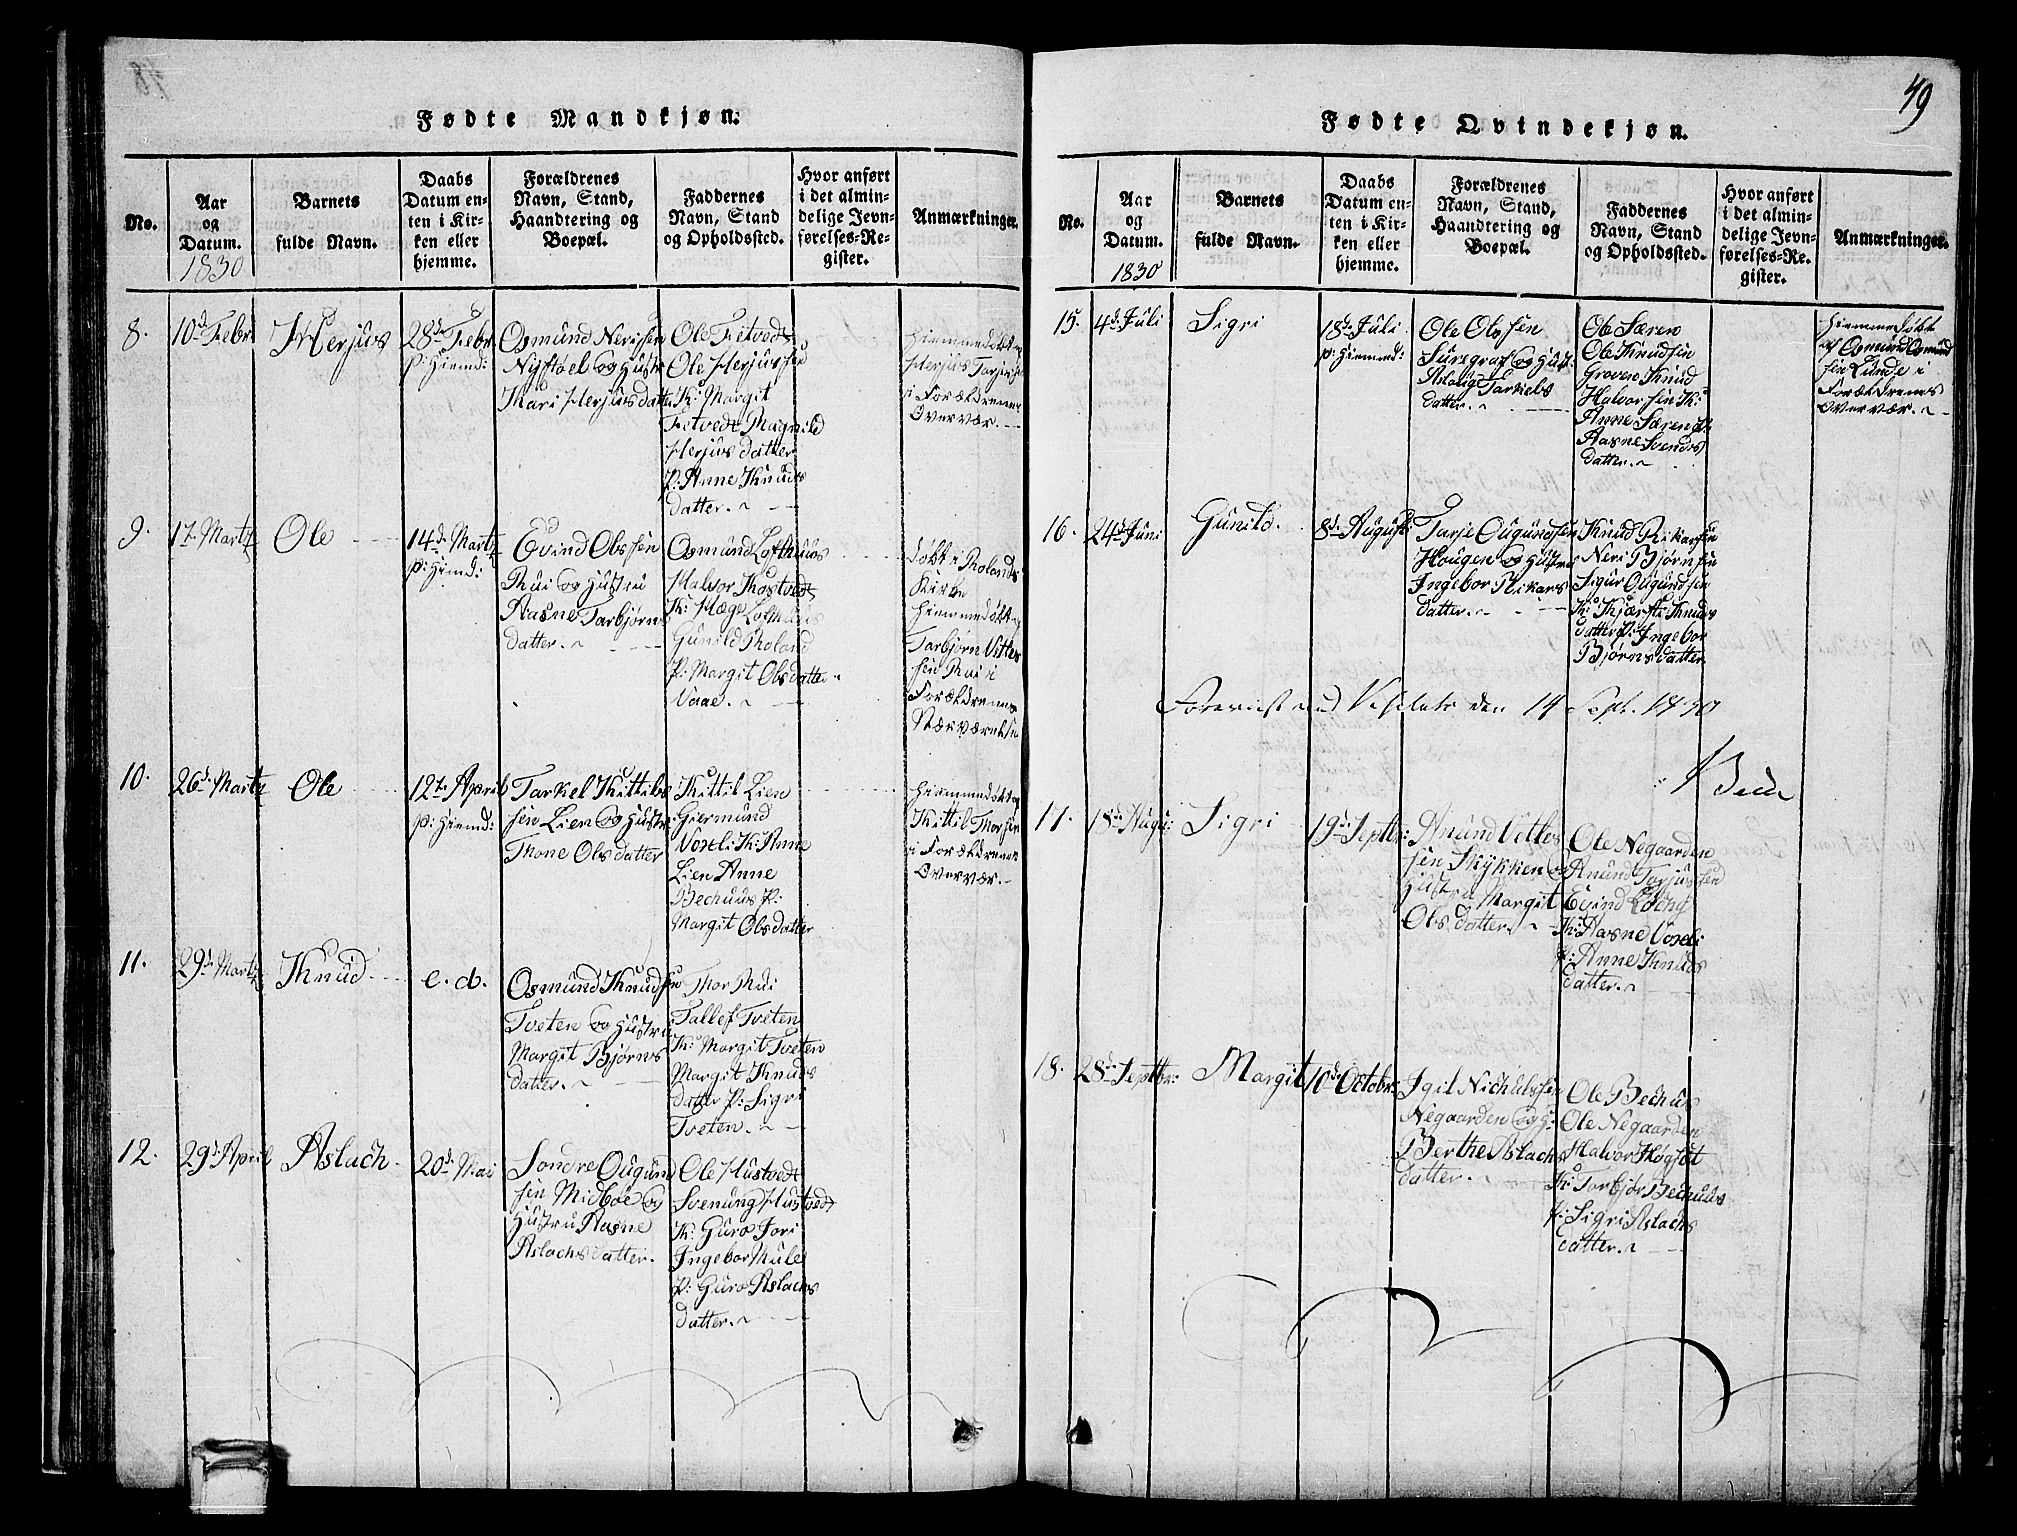 Fødte Mandkjøn.
No.
Aar
og
Datum.
1830
Barnets
fulde Navn.
Daabs
Datum en-
ten i Kir-
ken eller
hjemme.
Forældrenes
Navn, Stand,
Haandtering og
Boepæl.
Faddernes
Navn, Stand
og Opholdssted.
Hvor anført
i det almin-
delige Jevn-
førelses-Re-
gister.
Anmærkninger.
8.
10d Febr
Herjus
28d Febr
p: Hiemd:
Osmund Nerisen
Nystøel og Hustr
Kari Herjusdatter
Ole Fetvedt
Ole Herjussen
K: Margit
Fetvedt Magnild
Herjusdatter
P: Anne Knuds
datter.
Hiemmedøbt af
Herjus Tarjussen
i Forældrenes
Overvær.
9.
17. Martz
Ole
14d Martz
p: Hiemd:
Evind Olssen
Rui og Hustru
Aasne Tarbjørns
datter.
Osmund Lofthuus
Halvor Kostvedt
K: Hæge Lofthuus
Gunild Roland
P: Margit Olsdatter
Vaae.
døbt i Rolands
Kirke
Hiemmedøbt af
Tarbjørn Vetles
sen Rui i
Forældrenes
Nærværelse
10.
26d Martz
Ole
12t April
p: Hiemd:
Tarkel Kittils
sen Lien og Hustr
Tone Olsdatter
Kittil Lien
Giermund
Vosli K: Anne
Lien Anne
Bechuus P:
Margit Olsdatter
Hiemmedøbt af
Kittil Thorsen
i Forældrenes
Overvær.
11.
29d Martz
Knud
e. d.
Osmund Knudsen
Tveten og Hustru
Margit Bjørns
datter.
Thor Rui
Tallef Tveten
K: Margit Tveten
Margit Knuds
datter P: Sigri
Tveten.
12.
29d April
Aslach
20d Mai
Sondre Ougund
sen Midbøe og
Hustru Aasne
Aslachsdatter.
Ole Hustvedt
Svenung Hustvedt
K: Guro Jori
Ingebor Mule
P: Guro Aslachs
datter.
49
Fødte Qvindekjøn.
No.
Aar
og
Datum.
1830
Barnets
fulde Navn.
Daabs
Datum en-
ten i Kir-
ken eller
hjemme.
Forældrenes
Navn, Stand,
Haandtering og
Boepæl.
Faddernes
Navn, Stand
og Opholdssted.
Hvor anført
i det almin-
delige Jevn-
førelses-Re-
gister.
Anmærkninger.
15.
4d Juli
Sigri
18d Juli
p: Hiemd:
Ole Olssen
Suregraf og Hust:
Aslaug Tarkels
datter.
Ole Særen
Ole Knudsen
Groven Knud
Halvorsen K:
Anne Særen P:
Aasne Svends
datter.
Hiemmedøbt
af Osmund Osmund
sen Lunde i
Forældrenes
Overvær.
16.
24d Juni
Gunild.
8d August
Tarje Ougundsen
Haugen og Hustru
Ingebor Rikars
datter.
Knud Rikarsen
Neri Bjørnsen
Sigur Ougundsen
K: Kjærsti Knuds
datter P: Ingebor
Bjørnsdatter
Foreviist ved Visitats den 14 Sept. 1830
17.
18d Augu:
Sigri
19d Septbr:
Anund Vetles
sen Skykken og
Hustru Margit
Olsdatter.
Ole Negaarden
Anund Tarjussen
Evind
K: Aasne Vosli
P: Anne Knuds
datter.
18.
28d Septbr:
Margit
10d Octobr:
Igil Nichulssen
Negaarden og H:
Berthe Aslachs
datter.
Ole Bechus
Ole Negaarden
Halvor Hogset
K: Torbjør Bechuus
P: Sigri Aslachs
datter.